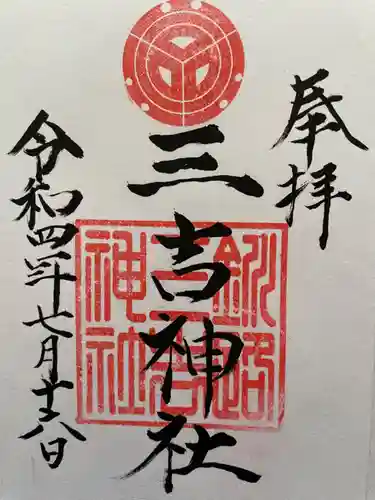 奉拝
三吉神社
令和四年七月十六日
釧路
三吉
神社